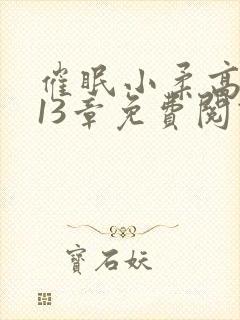 催眠小柔高
13章免費閱
寶石妖